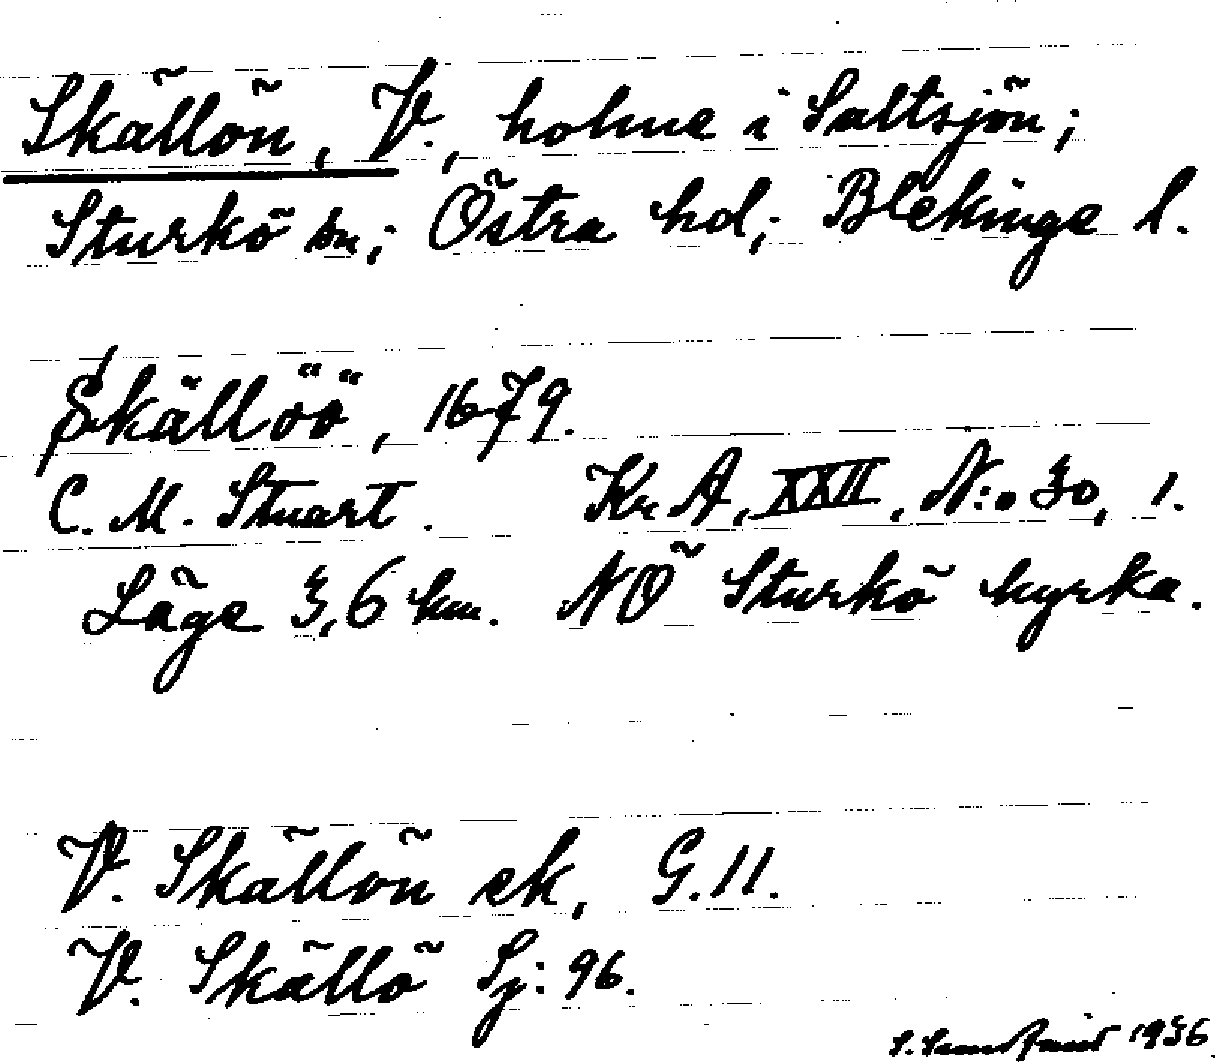 Skällön, V., holme i Saltsjön;
Sturkö sn; Östra hd; Blekinge l.
Skällöö, 1679.
C. M. Stuart. Kr. A, XXII, N:o 30, 1.
Läge 3,6 km. NÖ Sturkö kyrka.
V. Skällön ek, G. 11.
V. Skällö Sj: 96.
1936